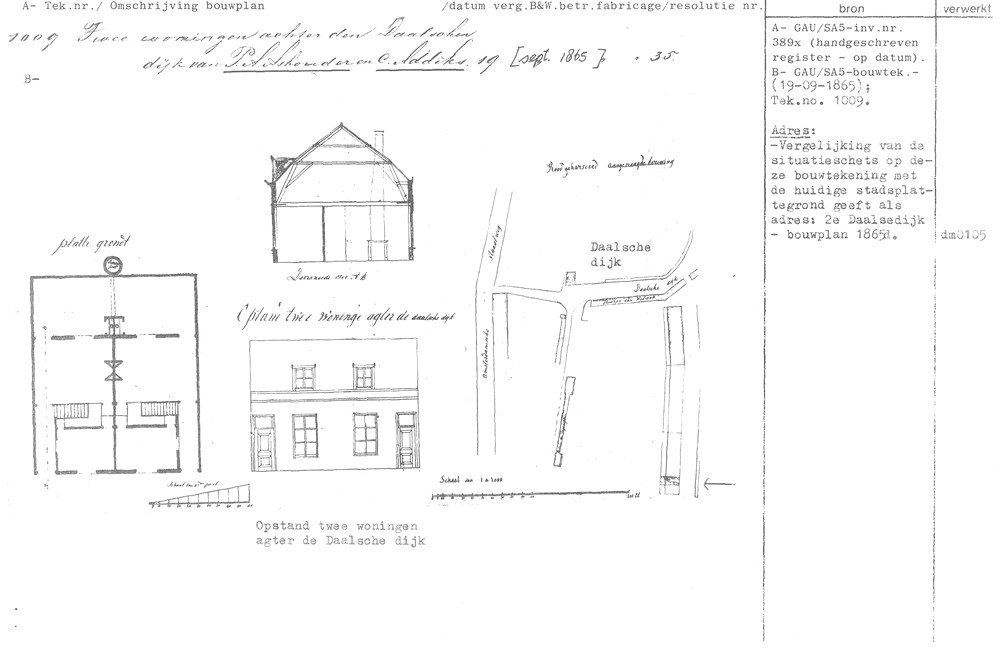 A- Tek.nr./ Omschrijving bouwplan /datum verg.B&W.betr.fabricage/resolutie nr.
bron
verwerkt
1009 Twee woningen achter den Daalschen
dijk van P.A. en C. Addiks. 19 [sept. 1865]. 35.
B-
A- GAU/SA5-inv.nr.
389x (handgeschreven
register - op datum).
B- GAU/SA5-bouwtek.-
(19-09-1865);
Tek.no. 1009.
Adres:
-Vergelijking van de
situatieschets op de-
ze bouwtekening met
de huidige stadsplat-
tegrond geeft als
adres: 2e Daalsedijk
- bouwplan 1865.
dm0105
platte gront
Doorsneede over A B
Rood gekarseerd aangevraagde bouwing
straatweg
Daalsche
dijk
Daalsche dijk
Amsterdamsche
Opstant twee woninge agter de daalsche dijk
Schaal
Schaal van 1 a 1000
Opstand twee woningen
agter de Daalsche dijk